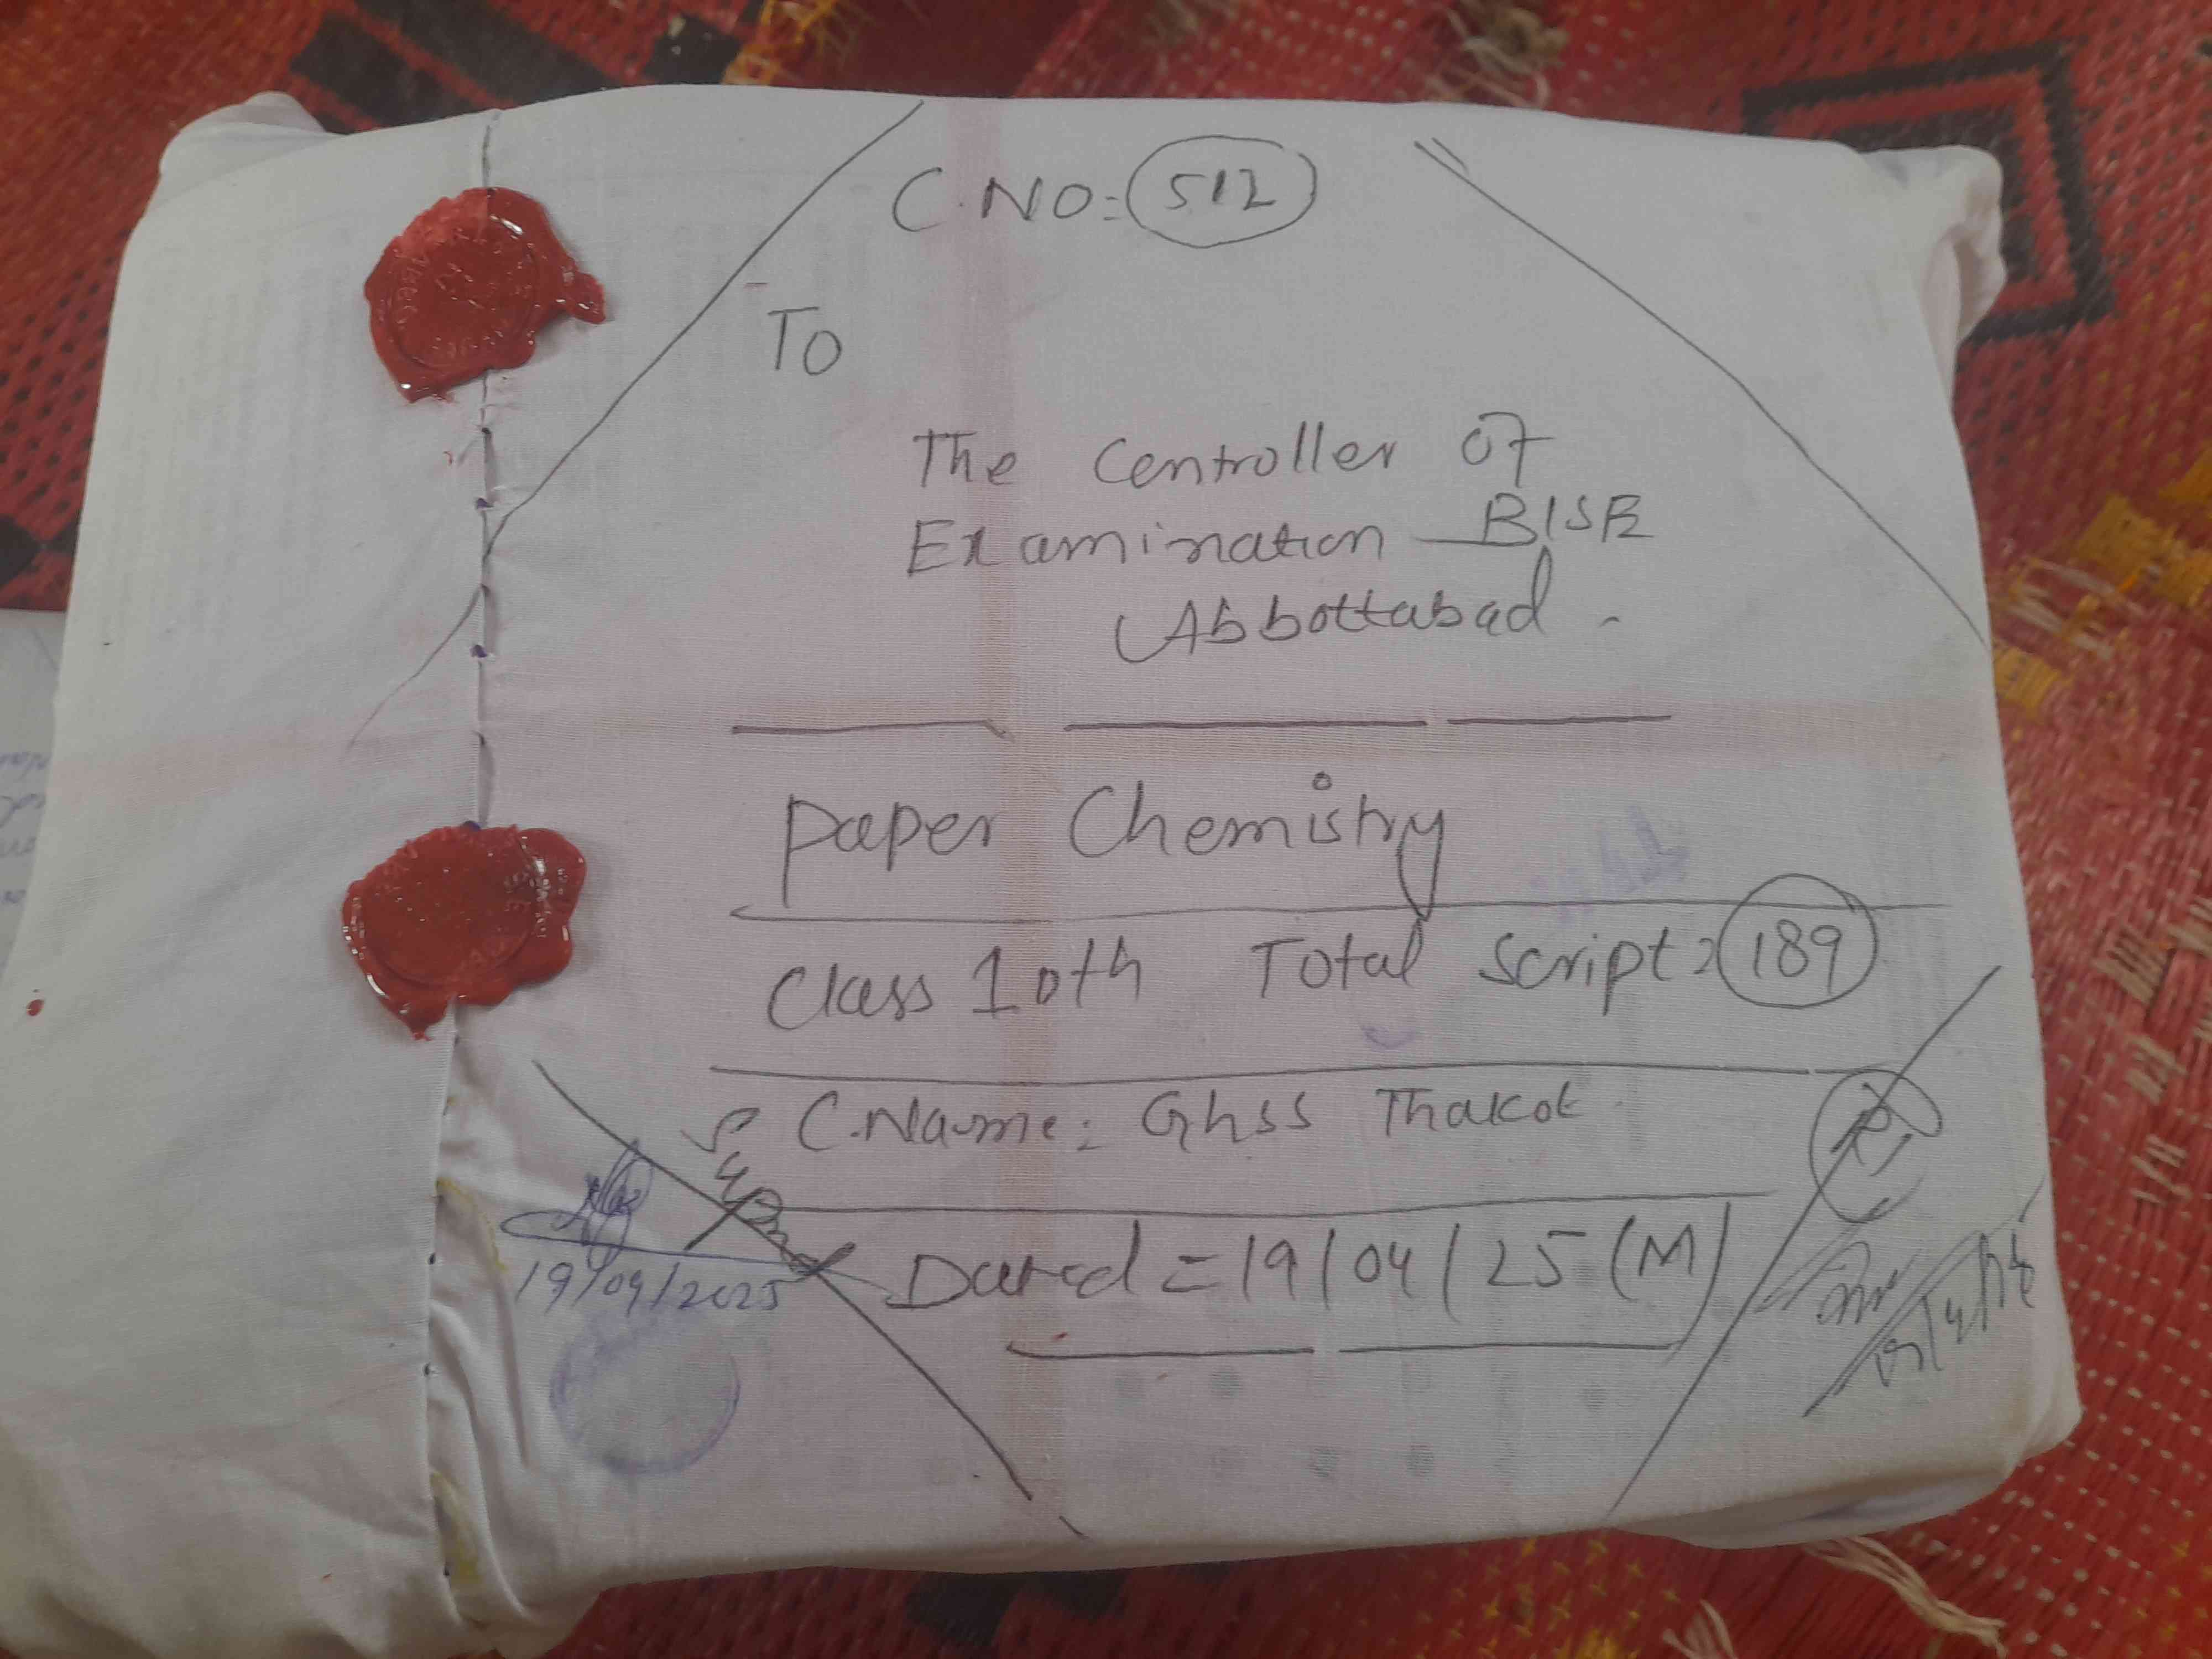 C.NO: 512
To
The Controller of
Examination BISE
Abbottabad.
Paper Chemistry
Class 10th Total Script= 189
C.Name: Ghss Thakot
Supdt
Dated = 19/04/25 (M)
19/04/2025